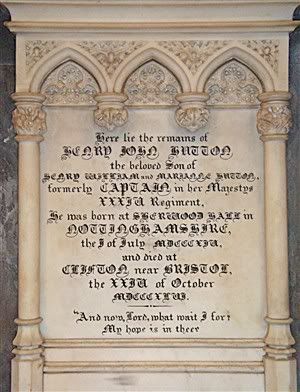 Here lie the remains of
HENRY JOHN HUTTON
the beloved Son of
HENRY WILLIAM and MARIANNE HUTTON,
formerly CAPTAIN in her Majestys
XXXIV Regiment.
He was born at SHERWOOD HALL in
NOTTINGHAMSHIRE,
the I of July MDCCCXIV,
and died at
CLIFTON near BRISTOL,
the XXIV of October
MDCCCXLVI.
"And now, Lord, what wait I for?
My hope is in thee"